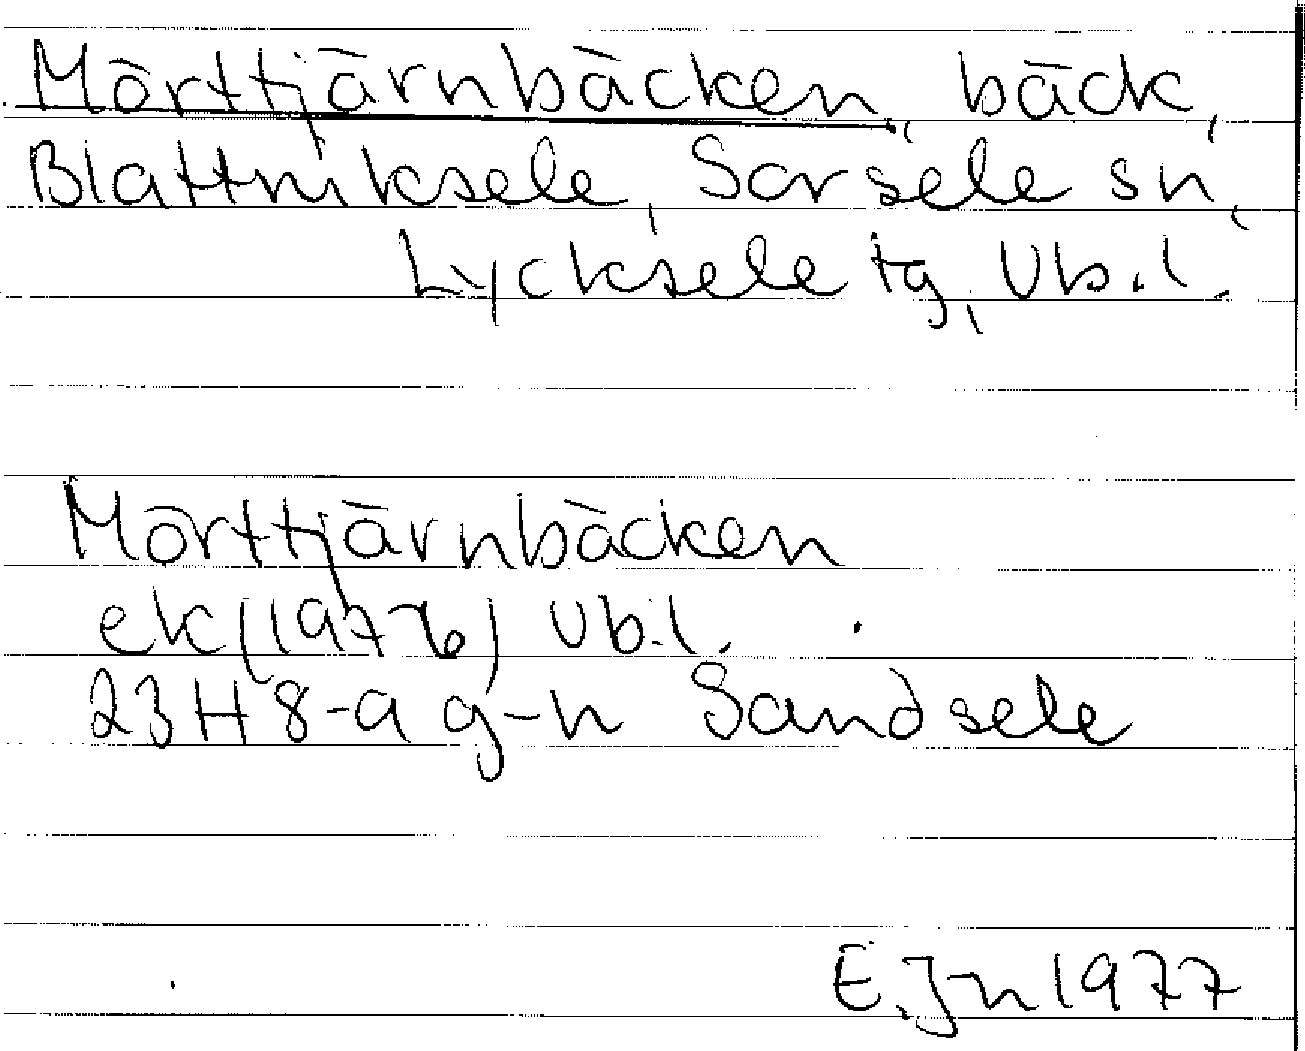 Mörttjärnbäcken, bäck,
Blattniksele, Sorsele sn,
Lycksele tg, Vb.l.
Mörttjärnbäcken
ek (1976) Vb.l.
23H 8-a g-h Sandsele
E.Jn 1977